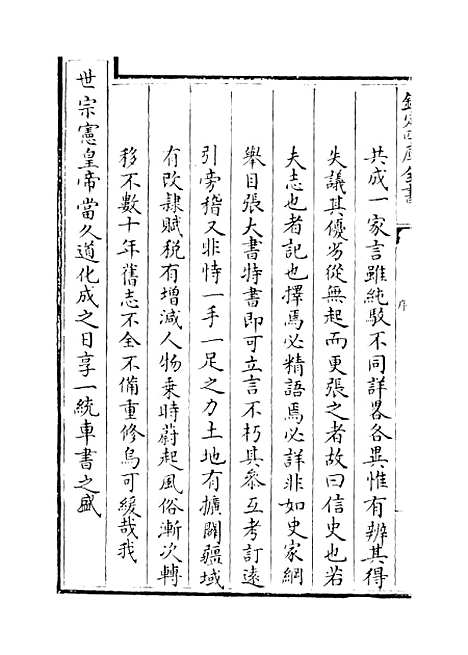 欽定四庫全書
序
共成一家言雖純駁不同詳畧各異惟有辨其得
失議其優劣從無起而更張之者故曰信史也若
夫志也者記也擇焉必精語焉必詳非如史家綱
舉目張大書特書即可立言不朽其參互考訂遠
引旁稽又非恃一手一足之力土地有擴闢疆域
有改隸賦稅有增減人物乗時蔚起風俗漸次轉
移不數十年舊志不全不備重修烏可緩哉我
世宗憲皇帝當久道化成之日享一統車書之盛